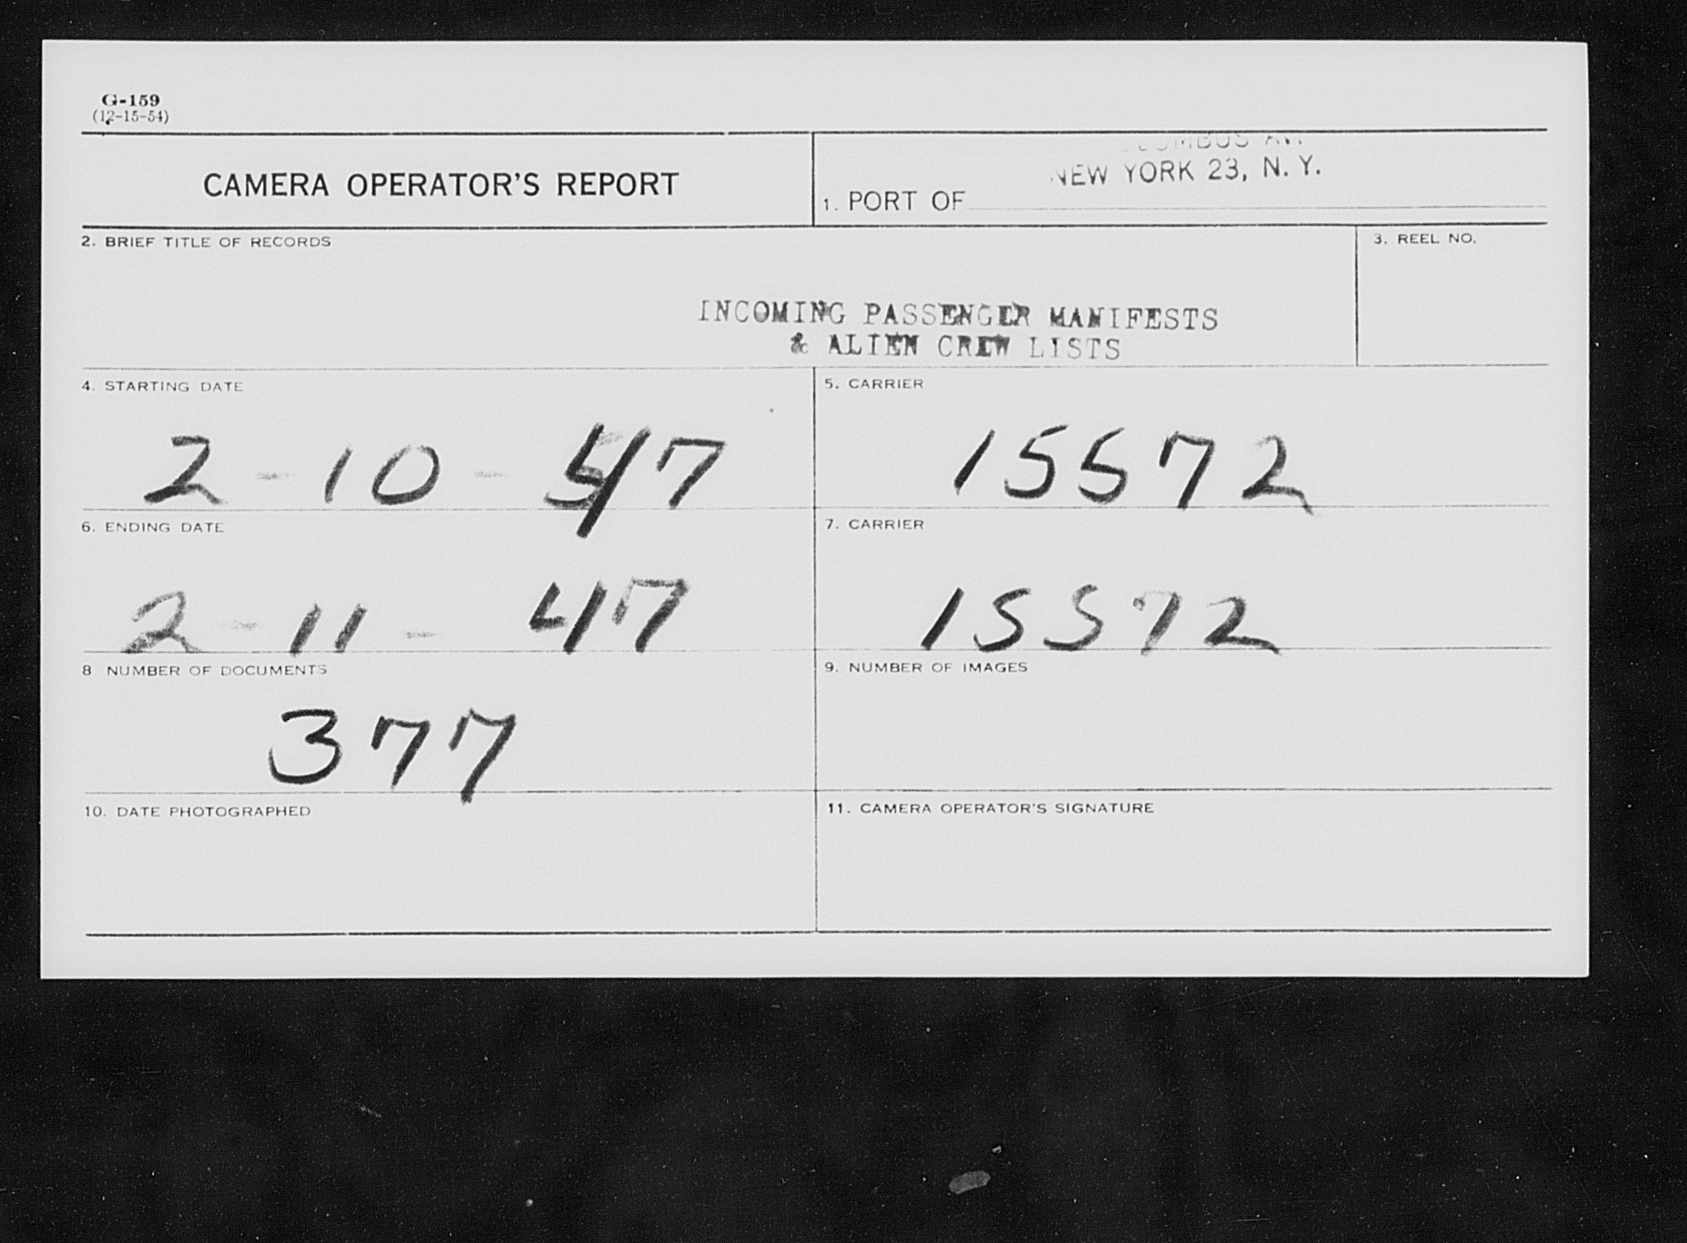 G-159
(12-15-54)
CAMERA OPERATOR'S REPORT
NEW YORK 23, N. Y.
1. PORT OF
2. BRIEF TITLE OF RECORDS
3. REEL NO.
INCOMING PASSENGER MANIFESTS
& ALIEN CREW LISTS
4. STARTING DATE
5. CARRIER
2-10-47
15572
6. ENDING DATE
7. CARRIER
2-11-47
15572
8 NUMBER OF DOCUMENTS
9. NUMBER OF IMAGES
377
10. DATE PHOTOGRAPHED
11. CAMERA OPERATOR'S SIGNATURE